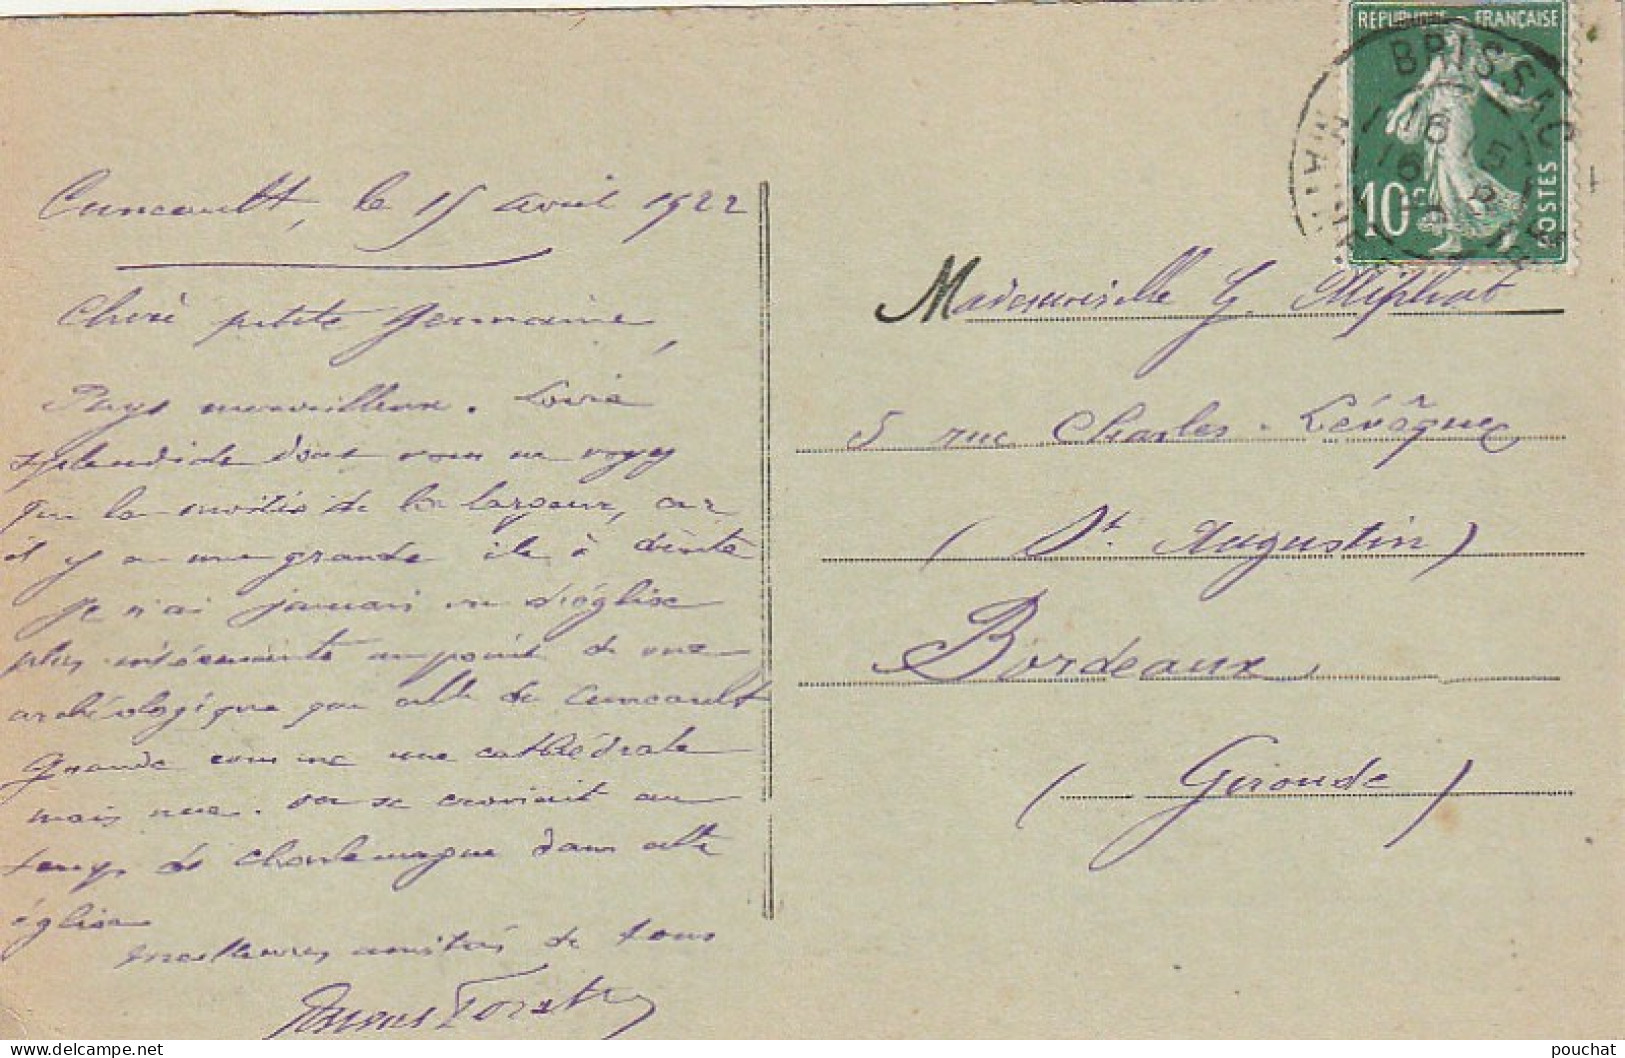 Cuncault, le 15 avril 1922
Chère petite Germaine,
Pays merveilleux. Loire
splendide dont vous ne voyez
que la moitié de la largeur, car
il y a une grande île à droite
Je n'ai jamais vu d'église
plus intéressante au point de vue
archéologique que celle de Cuncault
Grande comme une cathédrale
mais nue. on se croirait au
temps de Charlemagne dans cette
église
meilleures amitiés de tous
RÉPUBLIQUE FRANÇAISE
10c
POSTES
BRISSAC
MAINE
Mademoiselle G.
5 rue Charles-Lévêque
(St. Augustin)
Bordeaux.
(Gironde)
pouchat